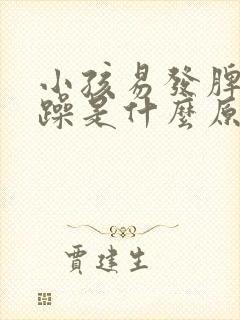 小孩易發脾
躁是什麼原
賈建生